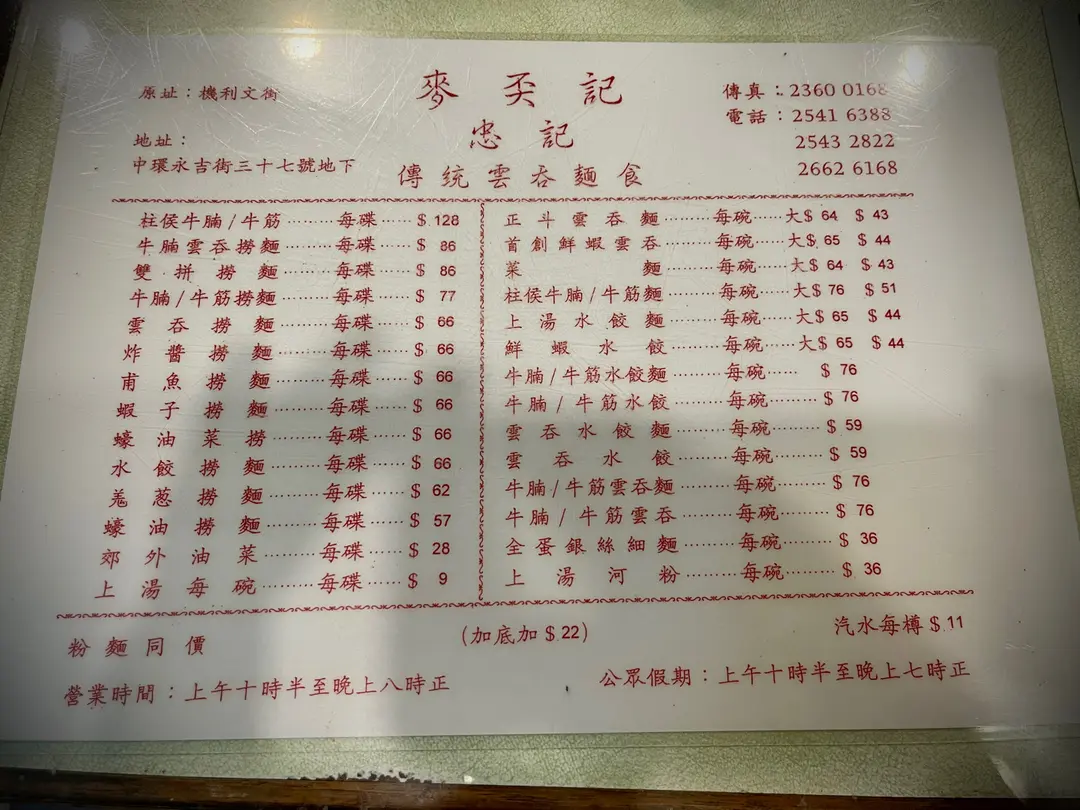 麥奀記
忠記
傳統雲吞麵食
原址：機利文街
地址：
中環永吉街三十七號地下
傳真：2360 0168
電話：2541 6388
2543 2822
2662 6168
柱侯牛腩/牛筋………每碟……$ 128
牛腩雲吞撈麵………每碟……$ 86
雙拼撈麵………每碟……$ 86
牛腩/牛筋撈麵………每碟……$ 77
雲吞撈麵………每碟……$ 66
炸醬撈麵………每碟……$ 66
甫魚撈麵………每碟……$ 66
蝦子撈麵………每碟……$ 66
蠔油菜撈………每碟……$ 66
水餃撈麵………每碟……$ 66
羗葱撈麵………每碟……$ 62
蠔油撈麵………每碟……$ 57
郊外油菜………每碟……$ 28
上湯每碗………每碟……$ 9
正斗雲吞麵………每碗……大$ 64 $ 43
首創鮮蝦雲吞………每碗……大$ 65 $ 44
菜麵………每碗……大$ 64 $ 43
柱侯牛腩/牛筋麵………每碗……大$ 76 $ 51
上湯水餃麵………每碗……大$ 65 $ 44
鮮蝦水餃………每碗……大$ 65 $ 44
牛腩/牛筋水餃麵………每碗…… $ 76
牛腩/牛筋水餃………每碗……… $ 76
雲吞水餃麵………每碗……… $ 59
雲吞水餃………每碗……… $ 59
牛腩/牛筋雲吞麵………每碗……… $ 76
牛腩/牛筋雲吞………每碗……… $ 76
全蛋銀絲細麵………每碗……… $ 36
上湯河粉………每碗……… $ 36
粉麵同價
(加底加 $ 22)
汽水每樽 $ 11
營業時間：上午十時半至晚上八時正
公眾假期：上午十時半至晚上七時正